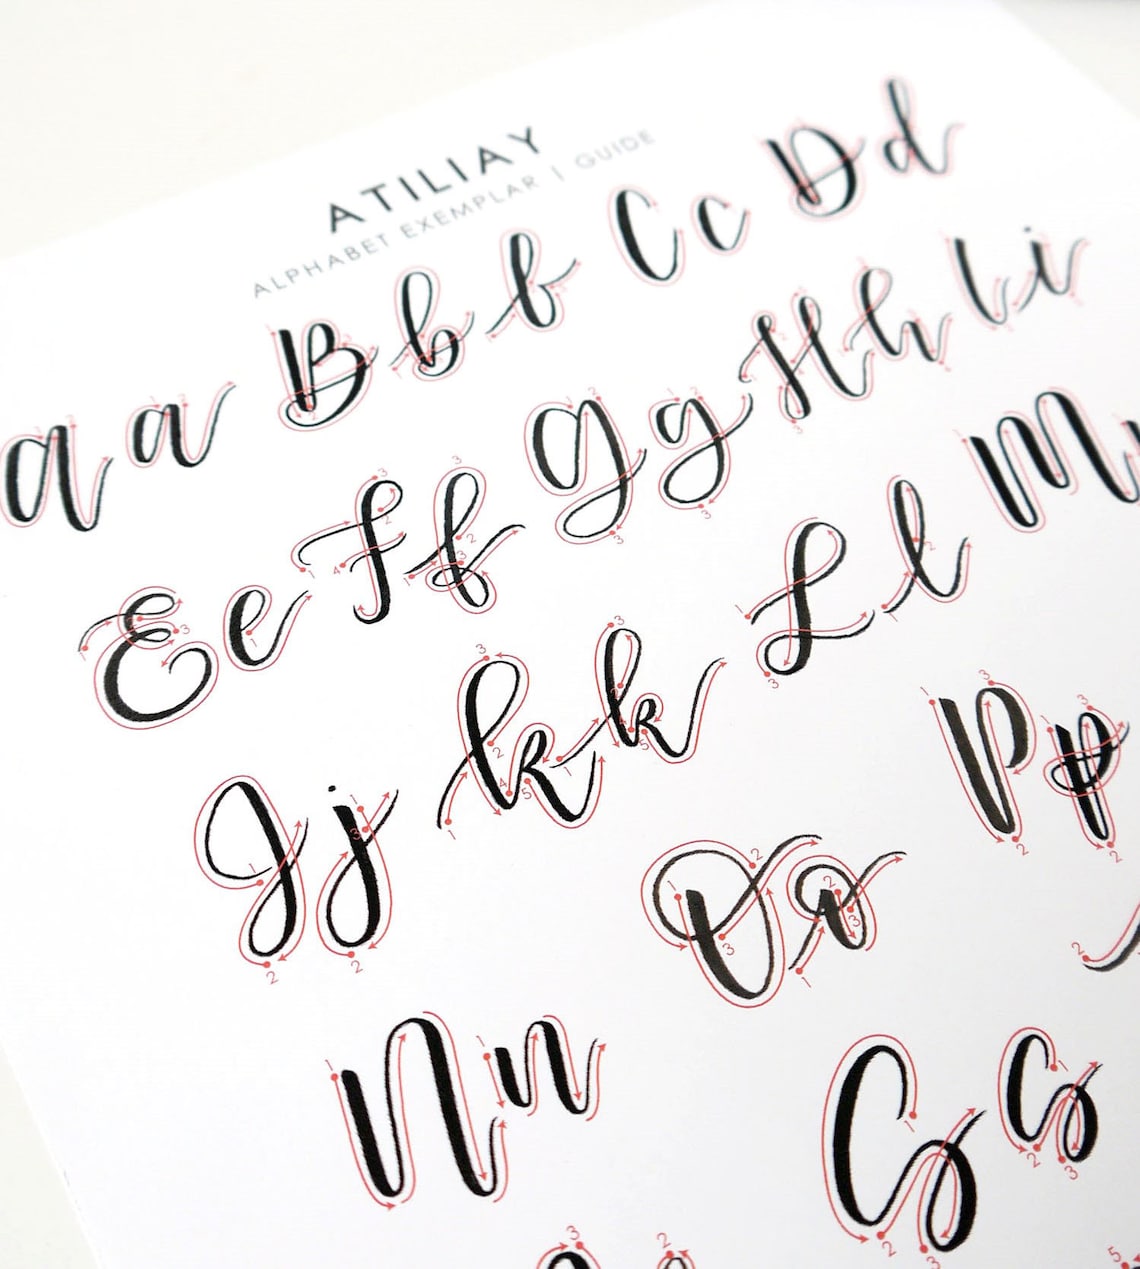 ATILIAY
ALPHABET EXEMPLAR | GUIDE
Aa Bb b Cc Dd
Ee Ff Gg Hh Ii
Jj Kk Ll M
Nn Oo Pp
Ss